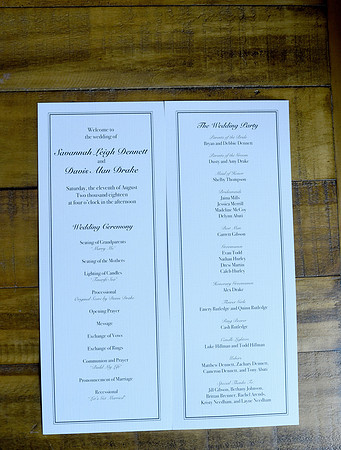 Welcome to
the wedding of
Savannah Leigh Dennett
and
Davis Alan Drake
Saturday, the eleventh of August
Two thousand eighteen
at four o'clock in the afternoon
Wedding Ceremony
Seating of Grandparents
"Marry Me"
Seating of the Mothers
Lighting of Candles
Processional
Original Score by Davis Drake
Opening Prayer
Message
Exchange of Vows
Exchange of Rings
Communion and Prayer
"Build My Life"
Pronouncement of Marriage
Recessional
"Let's Get Married"
The Wedding Party
Parents of the Bride
Bryan and Debbie Dennett
Parents of the Groom
Dusty and Amy Drake
Maid of Honor
Shelby Thompson
Bridesmaids
Jaina Mills
Jessica Merrill
Madeline McCoy
Delynn Afute
Best Man
Garrett Gibson
Groomsmen
Evan Todd
Nathan Hurley
Drew Martin
Caleb Hurley
Honorary Groomsmen
Alex Drake
Flower Girls
Emery Rutledge and Quinn Rutledge
Ring Bearer
Cash Rutledge
Candle Lighters
Luke Hillman and Todd Hillman
Ushers
Matthew Dennett, Zachary Dennett,
Cameron Dennett, and Tony Afute
Special Thanks To
Jill Gibson, Bethany Johnson,
Brittan Bremer, Rachel Arends,
Koray Needham, and Layne Needham